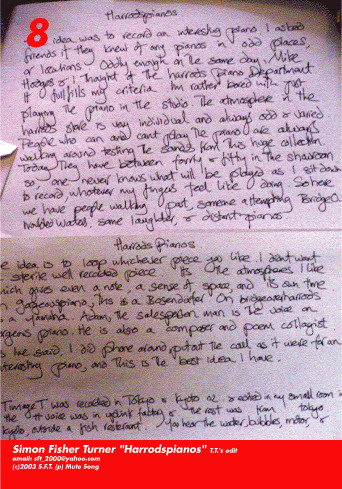 Harrodspianos
8
idea was to record an interesting piano. I asked
friends if they knew of any pianos in odd places
or locations. Oddly enough on the same day, Mike
Hodges & I thought of the harrods piano Department
It fulfills my criteria. Im rather bored with just
playing the piano in the studio. The atmosphere in the
harrods store is very individual and always odd & varied
People who can and cant play the piano are always
walking around testing the sounds from this huge collection.
Today They have between forty & fifty in the showroom
so, one never knows what will be played as I sit down
to record, whatever my fingers feel like doing. So here
we have people walking past, someone attempting Bridge O.
troubled water, some laughter, & distant pianos
Harrods Pianos
e idea is to loop whichever piece you like. I didnt want
sterile well recorded piece. Its the atmospheres I like
hich gives even a note, a sense of space, and its own time
piano, This is a Bosendorfer. On bridgeoverharrods
a yamaha. Adam, the salesperson man is the voice on
piano. He is also a composer and poem collagist
he said, I did phone around, putout the call as it were for an
nteresting piano, and This is the best idea I have.
was recorded in Tokyo & kyoto 02. is edited in my small room in
the voice was in upunk factory & the rest was from tokyo
outside a fish restaurant. You hear the water, bubbles, motor &
Simon Fisher Turner "Harrodspianos" T.T.'s edit
email: sft_2000@yahoo.com
(c)2003 S.F.T. (p) Mute Song